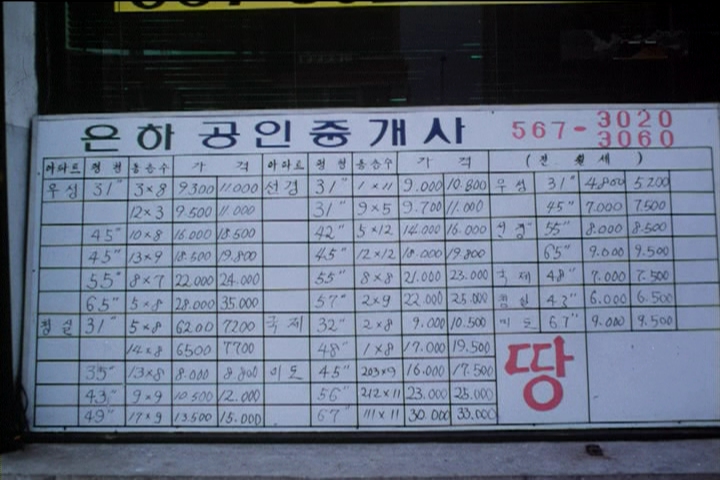 은하 공인중개사 567-3020 3060
아파트 평형 동층수 가 격 아파트 평형 동층수 가 격 (전 월 세)
우성 31" 3×8 9.300 11.000 선경 31" 1×11 9.000 10.800 우성 31" 4.800 5.200
12×3 9.500 11.000 31" 9×5 9.700 11.000 45" 7.000 7.500
45" 10×8 16.000 18.500 42" 5×12 14.000 16.000 55" 8.000 8.500
45" 13×9 18.500 19.800 45" 12×12 18.000 19.800 65" 9.000 9.500
55" 8×7 22.000 24.000 55" 8×8 21.000 23.000 국제 48" 7.000 7.500
65" 5×8 28.000 35.000 57" 2×9 22.000 25.000 청실 43" 6.000 6.500
청실 31" 5×8 6200 7200 국제 32" 2×8 9.000 10.500 미도 67" 9.000 9.500
14×8 6500 7700 48" 1×8 17.000 19.500
35" 13×8 8.000 8.800 미도 45" 203×9 16.000 17.500
43" 9×9 10.500 12.000 56" 212×11 23.000 25.000
49" 17×9 13.500 15.000 67" 111×11 30.000 33.000
땅